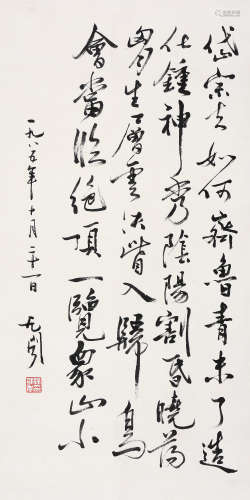 岱宗夫如何齊魯青未了造
化鍾神秀陰陽割昏曉蕩
胸生層雲決眥入歸鳥
會當臨絕頂一覽眾山小
一九八五年十月二十一日